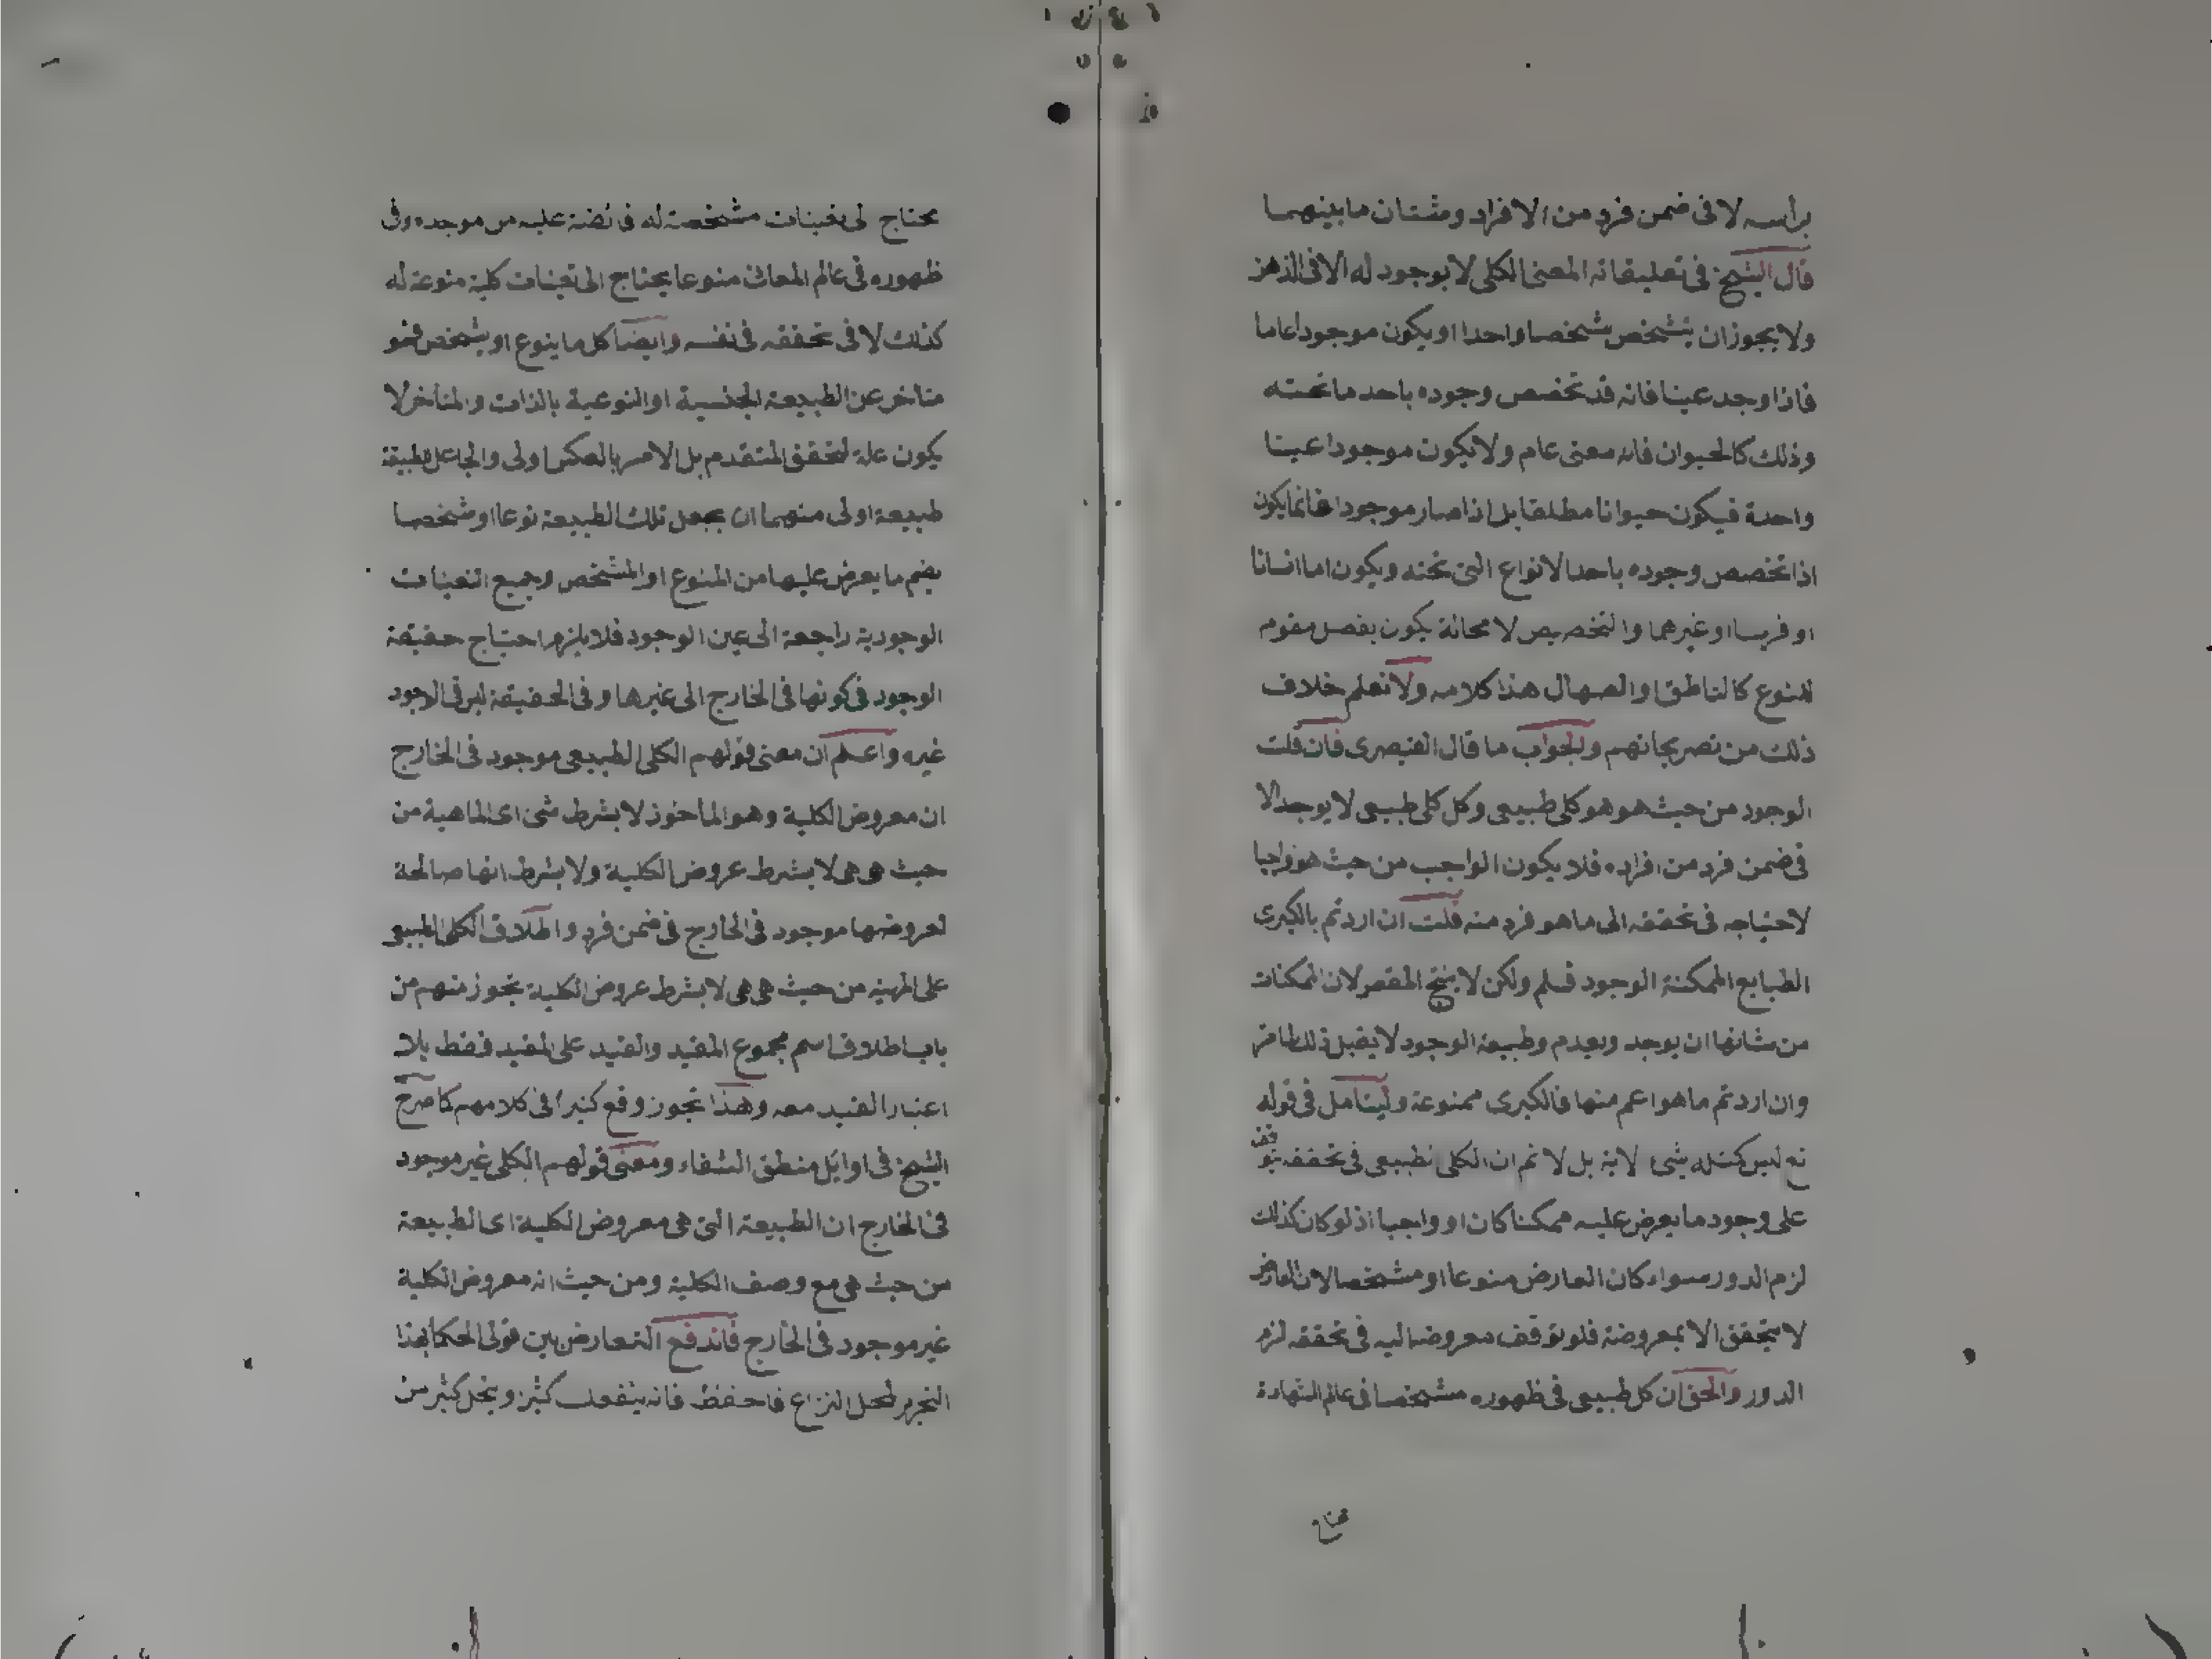 برأسه لا فى ضمن فرد من الافراد وشتان ما بينهما
قال الشيخ فى تعليقاته المعنى الكلى لا يوجود له الا فى الذهن
ولا يجوز ان يتشخص شخصا واحدا او يكون موجودا عاما
فاذا وجد عينا فانه قد تخصص وجوده باحد ما تحته
وذلك كالحيوان فانه معنى عام ولا يكون موجودا عينا
واحدة فيكون حيوانا مطلقا بل اذا صار موجودا فانما يكون
اذا تخصص وجوده باحد الانواع التى تحته ويكون اما انسانا
او فرسا او غيرهما والتخصيص لا محالة يكون بفصل مقوم
للنوع كالناطق او الصهال هذا كلامه ولا نعلم خلاف
ذلك من تصريحاتهم والجواب ما قال القيصرى فان قلت
الوجود من حيث هو هو كلى طبيعى وكل كلى طبيعى لا يوجد الا
فى ضمن فرد من افراده فلا يكون الواجب من حيث هو واجبا
لاحتياجه فى تحققه الى ما هو فرد منه قلت ان اردتم بالكبرى
الطبايع الممكنة الوجود فسلم ولكن لا ينتج المقصر لان الممكنات
من شانها ان يوجد ويعدم وطبيعة الوجود لا يقبل ذلك لما مر
وان اردتم ما هو اعم منها فالكبرى ممنوعة وليتامل فى قوله
تع ليس كمثله شئ لاية بل لا نم ان الكلى لطبيعى فى تحققه يتوقف
على وجود ما يعرض عليه ممكنا كان او واجبا اذ لو كان كذلك
لزم الدور سواء كان العارض منوعا او مشخصا لان العارض
لا يتحقق الا بمعروضة فلو توقف معروضه اليه فى تحققه لزم
الدور والحق ان كل طبيعى فى ظهوره مشخصا فى عالم الشهادة
يحتاج لى تعينات مشخصة له فائضة عليه من موجده وفى
ظهوره فى عالم المعانى منوعا يحتاج الى تعينات كلية منوعة له
كذلك لا فى تحققه فى نفسه وايضا كل ما ينوع او يشخص فهو
متاخر عن الطبيعة الجنسية او النوعية بالذات والمتاخر لا
يكون علة لتحقق المتقدم بل الامر بالعكس اولى والجاعل لطبيعة
طبيعة اولى منهما ان يجعل تلك الطبيعة نوعا او شخصا
بضم ما يعرض عليها من المنوع او المشخص وجميع التعينات
الوجودية راجعة الى عين الوجود فلا يلزم احتياج حقيقة
الوجود فى كونها فى الخارج الى غيرها وفى الحقيقة ليس فى الوجود
غيره واعلم ان معنى قولهم الكلى الطبيعى موجود فى الخارج
ان معروض الكلية وهو الماخوذ لا بشرط شئ اى الماهية من
حيث هى هى لا بشرط عروض الكلية ولا بشرط انها صالحة
لعروضها موجود فى الخارج فى ضمن فرد واطلاق الكلى الطبيعى
على المهية من حيث هى هى لا بشرط عروض الكلية تجوز منهم من
باب اطلاق اسم مجموع المقيد والقيد على المقيد فقط بلا
اعتبار القيد معه وهذا تجوز وقع كثيرا فى كلامهم كما صرح
الشيخ فى اوايل منطق الشفاء ومعنى قولهم الكلى غير موجود
فى الخارج ان الطبيعة التى هى معروض الكلية اى الطبيعة
من حيث هى مع وصف الكلية ومن حيث انه معروض الكلية
غير موجود فى الخارج فاندفع التعارض بين قولى الحكما بهذا
التحرير لمحل النزاع فاحفظ فانه ينفعك كثيرا وينحل كثير من